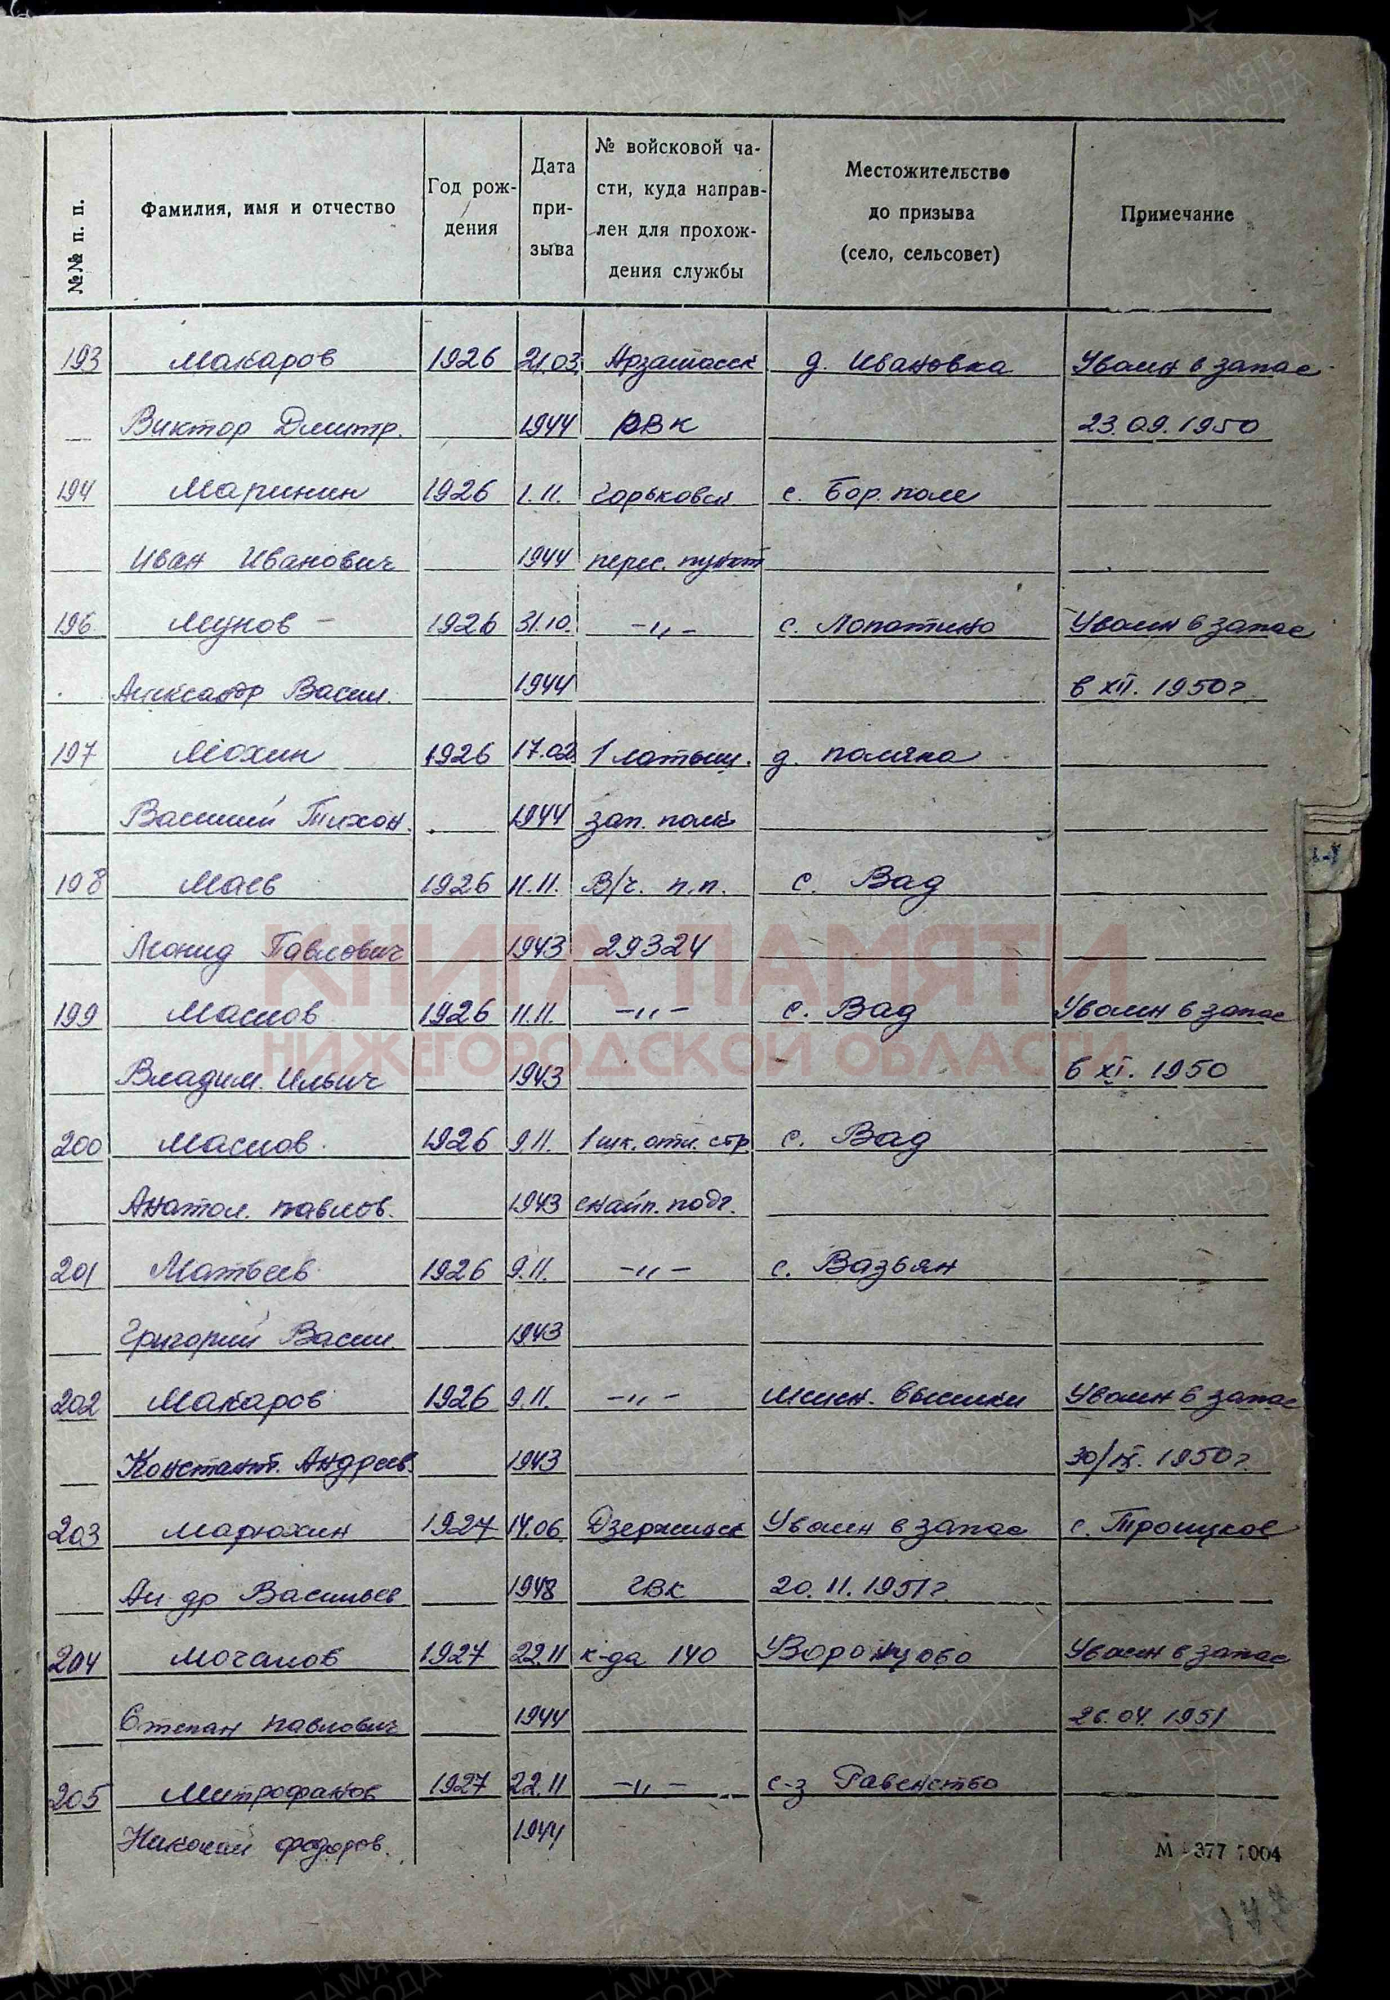 №№ п. п. Фамилия, имя и отчество Год рождения Дата призыва № войсковой части, куда направлен для прохождения службы Местожительство до призыва (село, сельсовет) Примечание
193 Макаров 1926 21.03. Арзамасск д. Ивановка Уволен в запас
Виктор Дмитр. 1944 РВК 23.09.1950
194 Маринин 1926 1.11. Горьковск. с. Бор. поле
Иван Иванович 1944 перес. пункт
196 Мунов 1926 31.10. -〃- с. Лопатино Уволен в запас
Александр Васил. 1944 в XII. 1950г.
197 Мохин 1926 17.02 1 латыш. д. поляна
Василий Тихон. 1944 зап. полк
198 Маев 1926 11.11. В/ч. п.п. с. Вад
Леонид Павлович 1943 29324
199 Маслов 1926 11.11. -〃- с. Вад Уволен в запас
Владим. Ильич 1943 в XI. 1950
200 Маслов 1926 9.11. 1 шк. отл. стр. с. Вад
Анатол. павлов. 1943 снайп. подг.
201 Матвеев 1926 9.11. -〃- с. Вазьян
Григорий Васил. 1943
202 Макаров 1926 9.11. -〃- выселки Уволен в запас
Константт. Андреев. 1943 30/IX. 1950г.
203 Марюхин 1927 14.06 Дзержинск Уволен в запас с. Троицкое
Ал-др Васильев 1948 ГВК 20.11.1951г.
204 Мочалов 1927 22.11 к-да 140 Воронцово Уволен в запас
Степан павлович 1944 26.04.1951
205 Митрофанов 1927 22.11 -〃- с-з Равенство
Николай федоров. 1944
М 377 7004
177
КНИГА ПАМЯТИ
НИЖЕГОРОДСКОЙ ОБЛАСТИ
ПАМЯТЬ НАРОДА